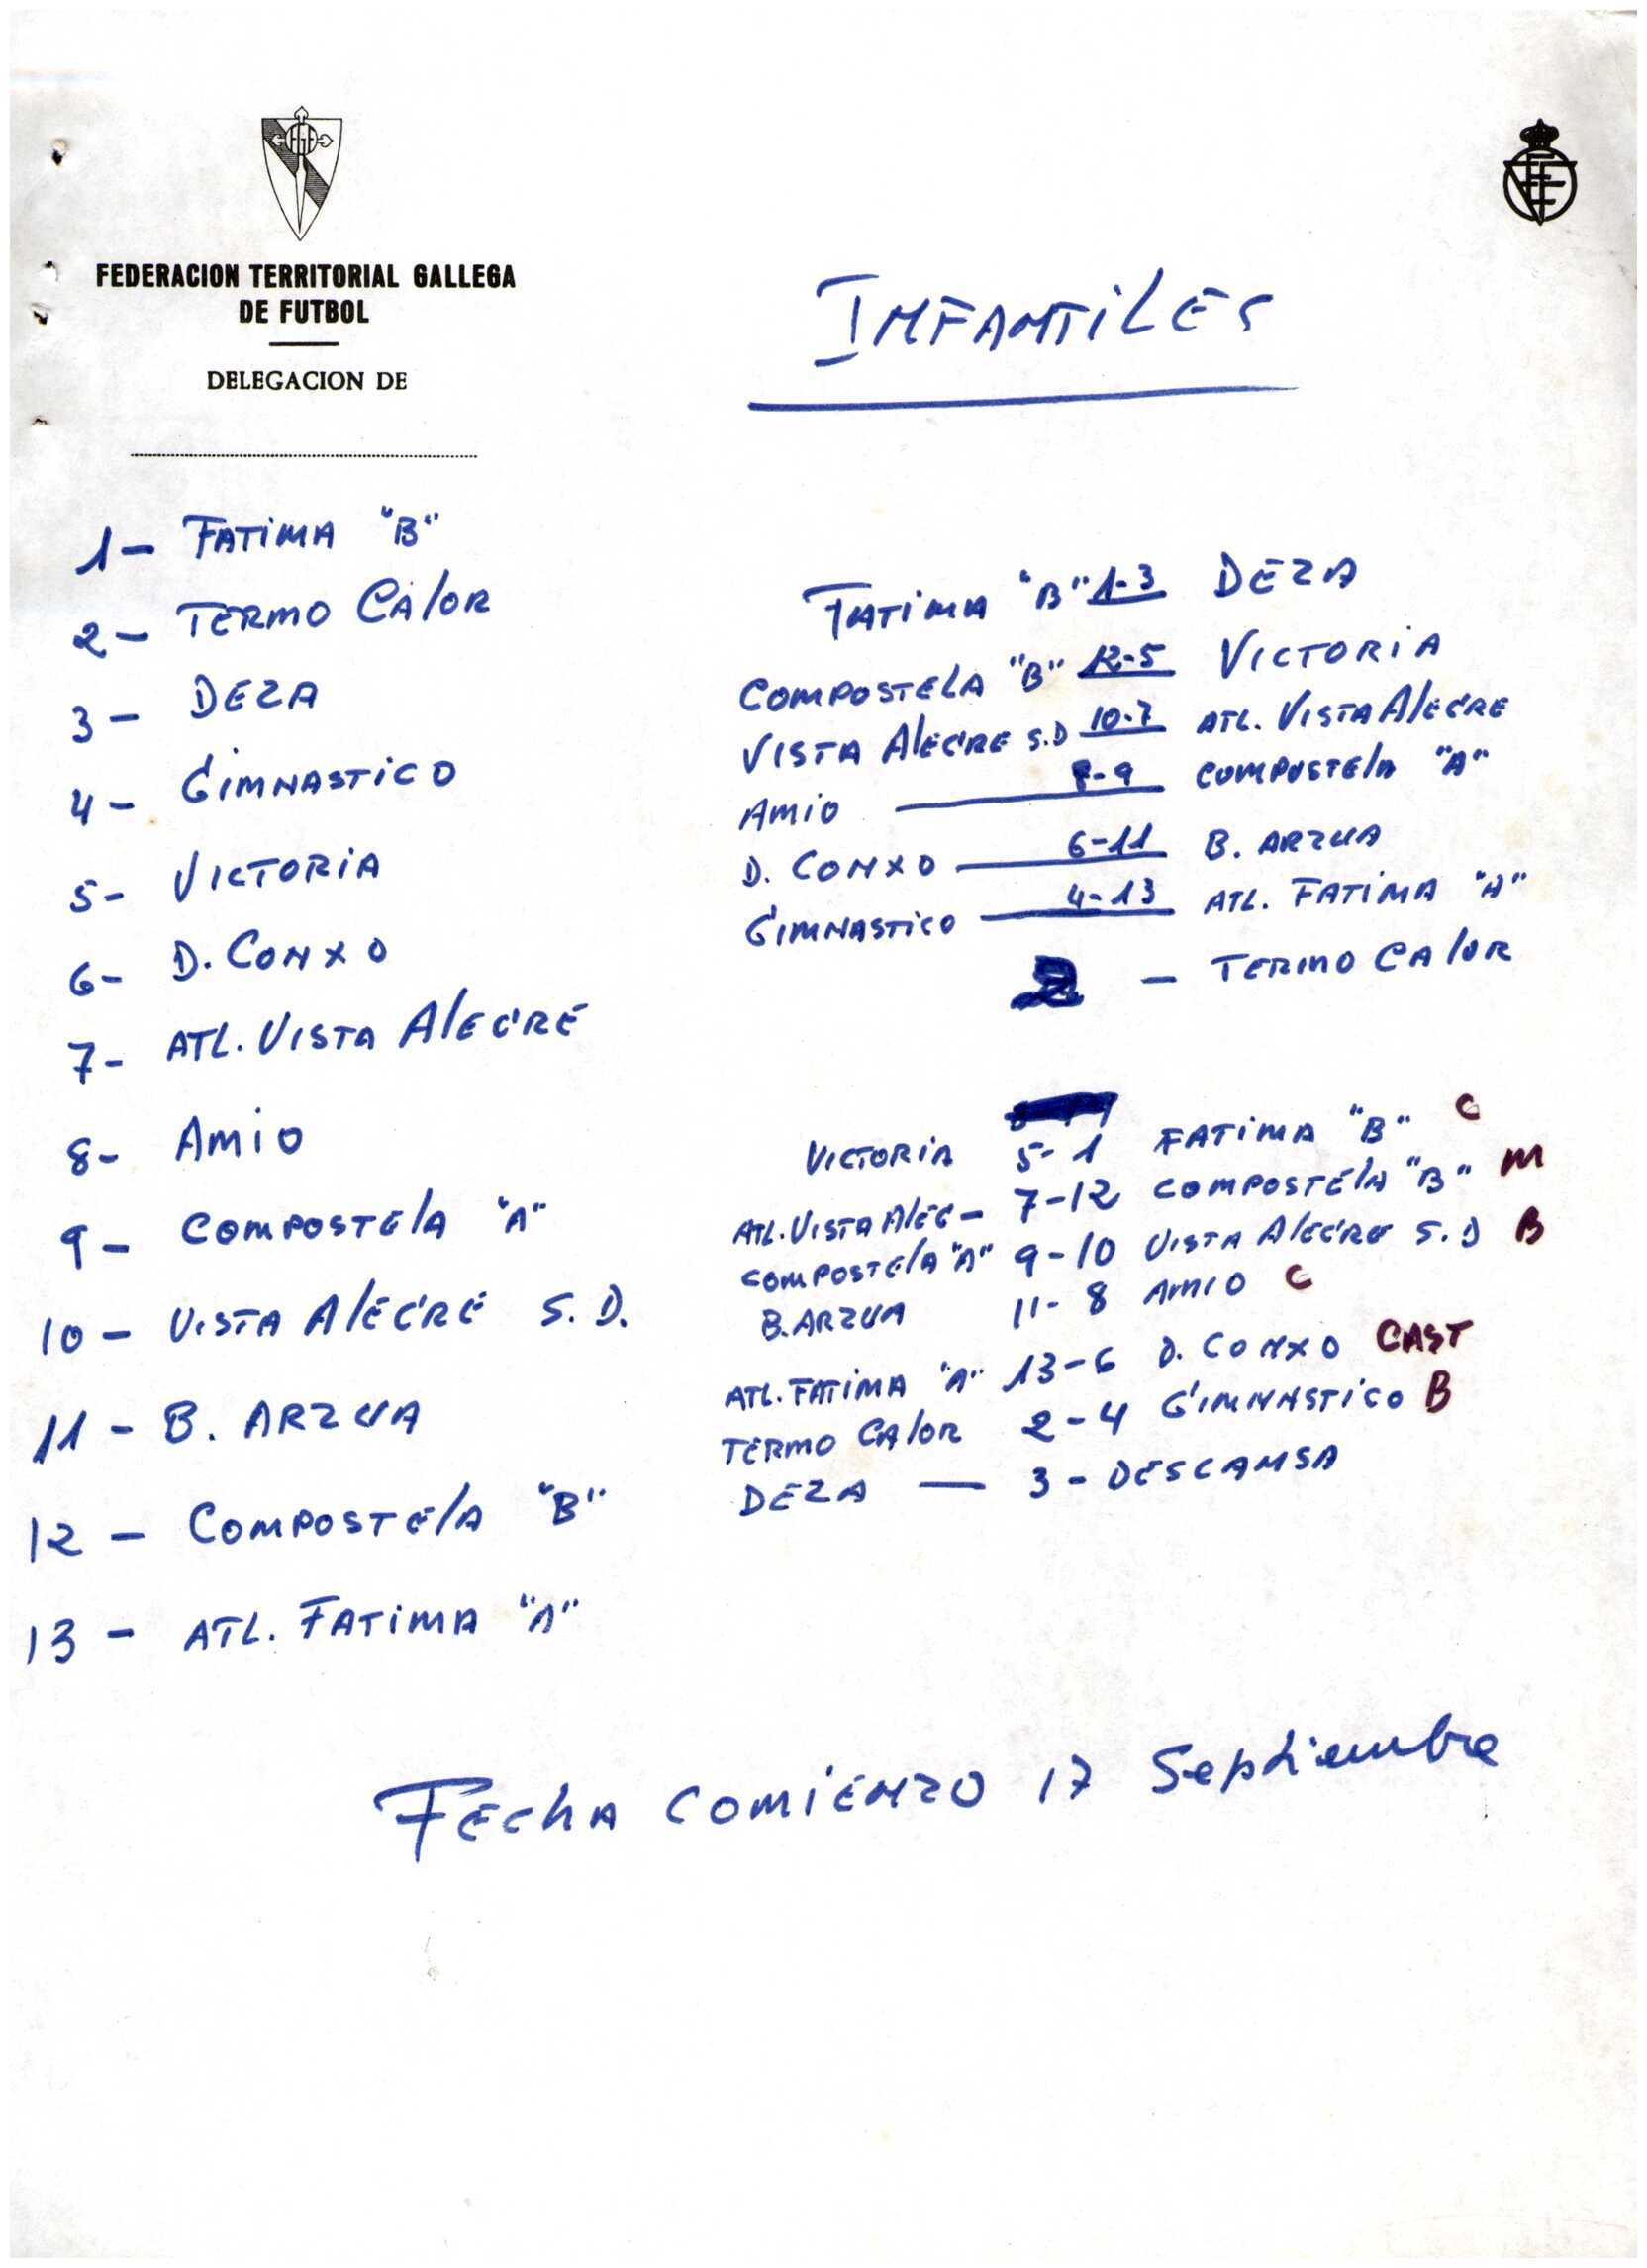 FEDERACION TERRITORIAL GALLEGA
DE FUTBOL
DELEGACION DE
INFANTILES
1- FATIMA "B"
2- TERMO CALOR
3- DEZA
4- GIMNASTICO
5- VICTORIA
6- D. CONXO
7- ATL. VISTA ALEGRE
8- AMIO
9- COMPOSTELA "A"
10- VISTA ALEGRE S.D.
11- B. ARZUA
12- COMPOSTELA "B"
13- ATL. FATIMA "A"
FATIMA "B" 1-3 DEZA
COMPOSTELA "B" 12-5 VICTORIA
VISTA ALEGRE S.D 10-7 ATL. VISTA ALEGRE
AMIO 8-9 COMPOSTELA "A"
D. CONXO 6-11 B. ARZUA
GIMNASTICO 4-13 ATL. FATIMA "A"
2 - TERMO CALOR
VICTORIA 5-1 FATIMA "B" C
ATL. VISTA ALEG- 7-12 COMPOSTELA "B" M
COMPOSTELA "A" 9-10 VISTA ALEGRE S.D B
B. ARZUA 11-8 AMIO C
ATL. FATIMA "A" 13-6 D. CONXO CAST
TERMO CALOR 2-4 GIMNASTICO B
DEZA - 3 - DESCANSA
FECHA COMIENZO 17 Septiembre